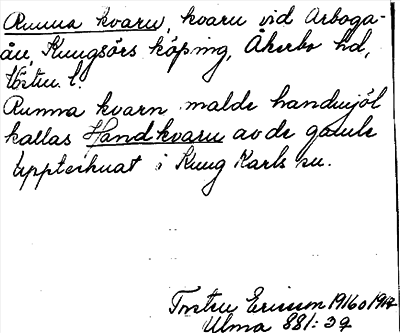 Runna kvarn, kvarn vid Arboga-
ån, Kungsörs köping, Åkerbo hd,
Västm. l.
Runna kvarn malde handmjöl
kallas Handkvarn av de gamle
uppteknat i Kung Karls sn.
Torsten Ericsson 1916 o 1917
Ulma 881: